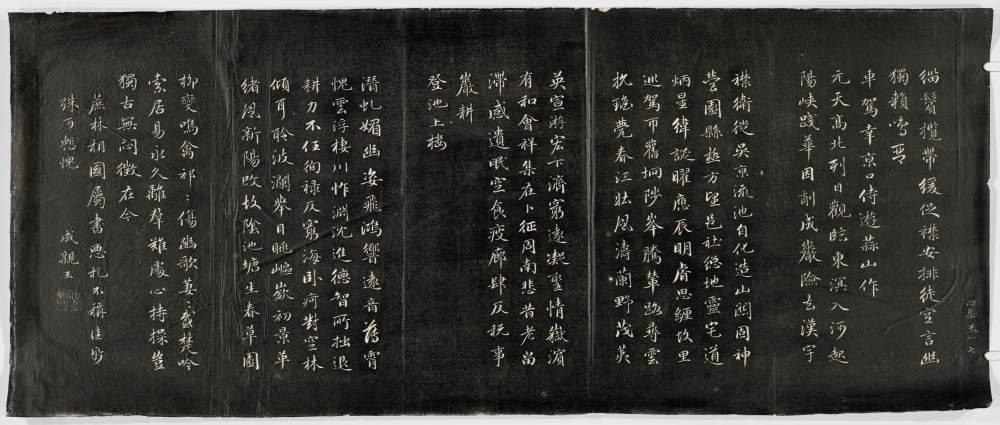 緇鬢攬帶緩促襟安排徒空言幽
獨賴鳴琴
車駕幸京口侍遊蒜山作
元天高北列日觀臨東溟入河起
陽峽踐華因削成巖險去漢宇
襟衛徙吳京流池自化造山關固神
營園縣極方望邑社總地靈宅道
炳星緯誕曜應辰明睿思纏故里
巡駕帀舊坰陟峯騰輦路尋雲
抗瑤甍春江壯風濤蘭野茂荑
英宣遊宏下濟窮遠凝聖情嶽濱
有和會祥集在卜征周南悲昔老留
滯感遺氓空食疲廊肆反稅事
巖耕
登池上樓
潛虬媚幽姿飛鴻響遠音薄霄
愧雲浮棲川怍淵沈進德智所拙退
耕力不任徇祿反窮海臥痾對空林
傾耳聆波瀾舉目眺嶇嶔初景革
緒風新陽改故陰池塘生春草園
柳變鳴禽祁〻傷豳歌萋〻感楚吟
索居易永久離羣難處心持操豈
獨古無悶徵在今
蔗林相國屬書惡札不稱佳紙
殊可慙愧
成親王
四集卷一 七